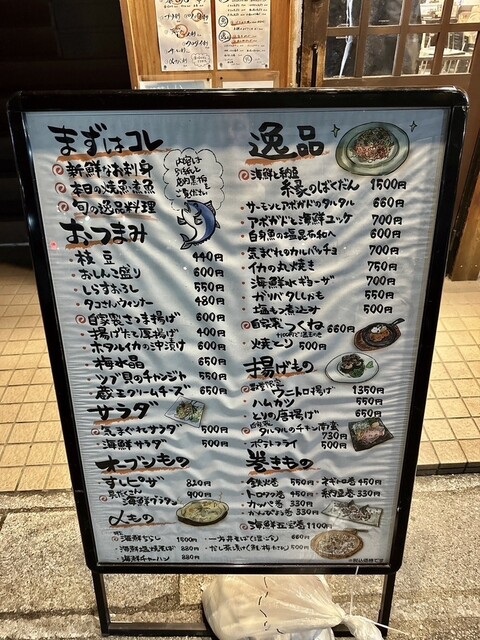 まずはコレ
◎新鮮なお刺身
◎本日の焼魚煮魚
◎旬の逸品料理
内容は
別紙と
店内黒板
ご覧ください
おつまみ
・枝豆 440円
・おしんこ盛り 600円
・しらすおろし 550円
・タコさんウィンナー 480円
◎自家製さつま揚げ 600円
・揚げたて厚揚げ 400円
・ホタルイカの沖漬け 600円
・梅水晶 650円
・ツブ貝のチャンジャ 550円
・蔵王クリームチーズ 650円
サラダ
◎気まぐれサラダ 500円
・海鮮サラダ 500円
オーブンもの
すしピザ 820円
海鮮グラタン 900円
〆もの
・海鮮ちらし
・海鮮塩焼そば 880円
・海鮮チャーハン 880円
660円
500円
逸品
◎海鮮と納豆
ばくだん 1500円
サーモンとアボカドのタルタル 660円
アボカドと海鮮ユッケ 700円
白身魚の塩昆布和へ 600円
気まぐれカルパッチョ 700円
・イカの丸焼き 750円
・海鮮水ギョーザ 700円
・ガリバタしめじ 550円
・塩もつ煮込み 500円
◎自家製つくね 660円
・焼とり 500円
揚げもの
ウニトロ揚げ 1350円
・ハムカツ 550円
・とりの唐揚げ 650円
タルタルのチキン南蛮 730円
・ポテトフライ 500円
巻きもの
・鉄火巻 550円 ・ネギトロ巻 450円
・トロたく巻 450円 ・納豆巻 330円
・カッパ巻 330円
・かんぴょう巻 330円
◎海鮮五宝巻 1100円